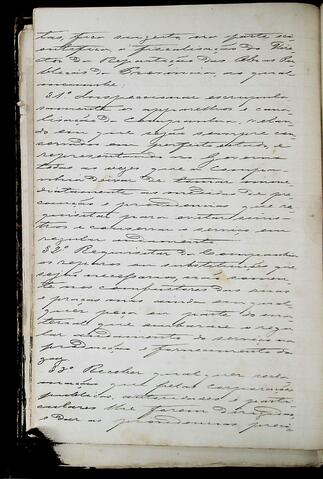 tas, fica sugeita na parte sci
entifica a fiscalisação do Dire
ctor da Repartição das Obras Pu
blicas da Provincia, ao qual
incumbe:
§1º Inspeccionar escrupulo
samente os apparelhos e cana
lisação da Companhia, velan
do em que sejão sempre con
servados em perfeito estado, e
representando ao Governo
todas as vezes que a Compa
nhia deixar de tomar imme
diatamente as medidas de pre
caução e providencias que re
quisitar para evitar sinis
tros e conservar o serviço em
regular andamento.
§2º Requisitar da Companhia
os reparos ou substituições que
sejão necessarias
nos combustores das ruas
e praças assim em qual
quer peça ou parte do ma
terial que embarace o regu
lar andamento do serviço na
producção e fornecimento do
gaz.
§3º Receber qualquer recla
mação que pelas corporações
publicas, autoridades e parti
culares lhe forem dirigidas
e dar as providencias preci